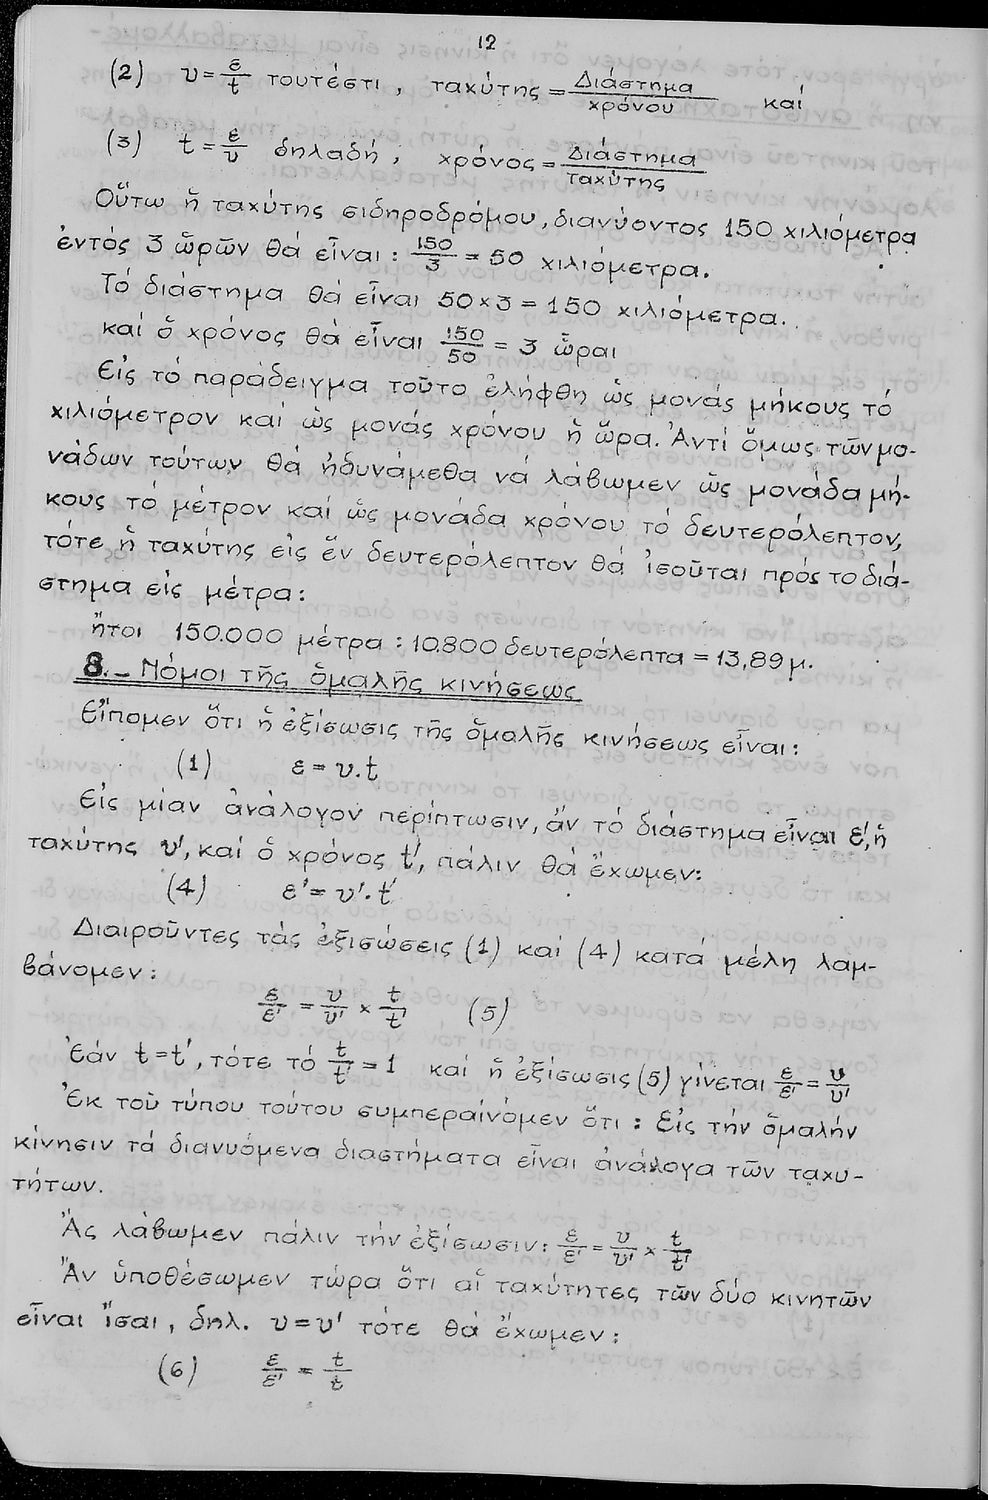 12
(2) υ = ε/t τουτέστι, ταχύτης = Διάστημα/χρόνου καί
(3) t = ε/υ δηλαδή, χρόνος = Διάστημα/ταχύτης
Οὕτω ἡ ταχύτης σιδηροδρόμου, διανύοντος 150 χιλιόμετρα
ἐντός 3 ὡρῶν θά εἶναι : 150/3 = 50 χιλιόμετρα.
Τό διάστημα θά εἶναι 50 × 3 = 150 χιλιόμετρα.
καί ὁ χρόνος θά εἶναι 150/50 = 3 ὧραι
Εἰς τό παράδειγμα τοῦτο ἐλήφθη ὡς μονάς μήκους τό
χιλιόμετρον καί ὡς μονάς χρόνου ἡ ὥρα. Ἀντί ὅμως τῶν μο-
νάδων τούτων θά ἠδυνάμεθα νά λάβωμεν ὡς μονάδα μή-
κους τό μέτρον καί ὡς μονάδα χρόνου τό δευτερόλεπτον,
τότε ἡ ταχύτης εἰς ἕν δευτερόλεπτον θά ἰσοῦται πρός το διά-
στημα εἰς μέτρα:
ἤτοι 150.000 μέτρα : 10.800 δευτερόλεπτα = 13,89 μ.
8.- Νόμοι τῆς ὁμαλῆς κινήσεως
Εἴπομεν ὅτι ἡ ἐξίσωσις τῆς ὁμαλῆς κινήσεως εἶναι:
(1) ε = υ.t
Εἰς μίαν ἀνάλογον περίπτωσιν, ἄν τό διάστημα εἶναι ε', ἡ
ταχύτης υ', καί ὁ χρόνος t', πάλιν θά ἔχωμεν:
(4) ε' = υ'.t'
Διαιροῦντες τάς ἐξισώσεις (1) καί (4) κατά μέλη λαμ-
βάνομεν:
ε/ε' = υ/υ' × t/t' (5)
Ἐάν t = t', τότε τό t/t' = 1 καί ἡ ἐξίσωσις (5) γίνεται ε/ε' = υ/υ'
Ἐκ τοῦ τύπου τούτου συμπεραίνομεν ὅτι : Εἰς τήν ὁμαλήν
κίνησιν τά διανυόμενα διαστήματα εἶναι ἀνάλογα τῶν ταχυ-
τήτων.
Ἄς λάβωμεν πάλιν τήν ἐξίσωσιν: ε/ε' = υ/υ' × t/t'
Ἄν ὑποθέσωμεν τώρα ὅτι αἱ ταχύτητες τῶν δύο κινητῶν
εἶναι ἴσαι, δηλ. υ = υ' τότε θά ἔχωμεν:
(6) ε/ε' = t/t